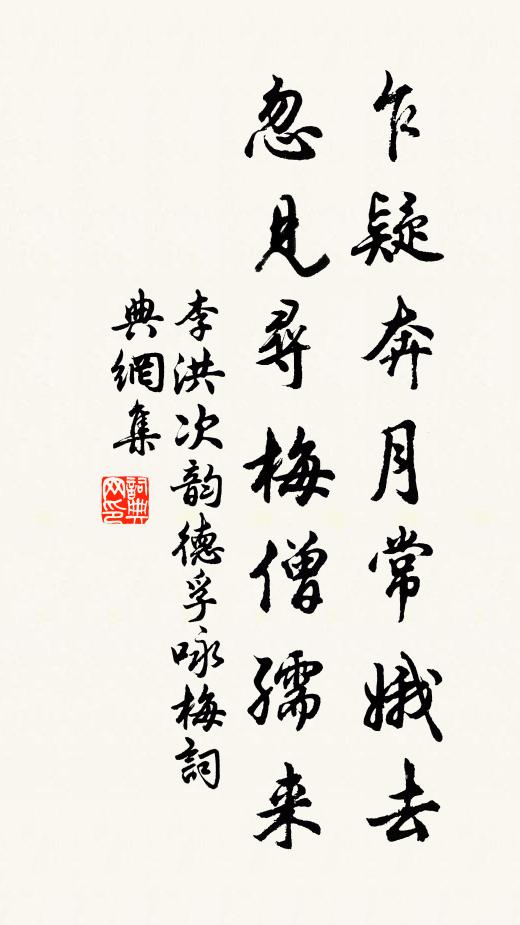 乍疑奔月常娥去
忽见尋梅僧孺来
李洪次韵德孚咏梅詞
典網集
詞典网印